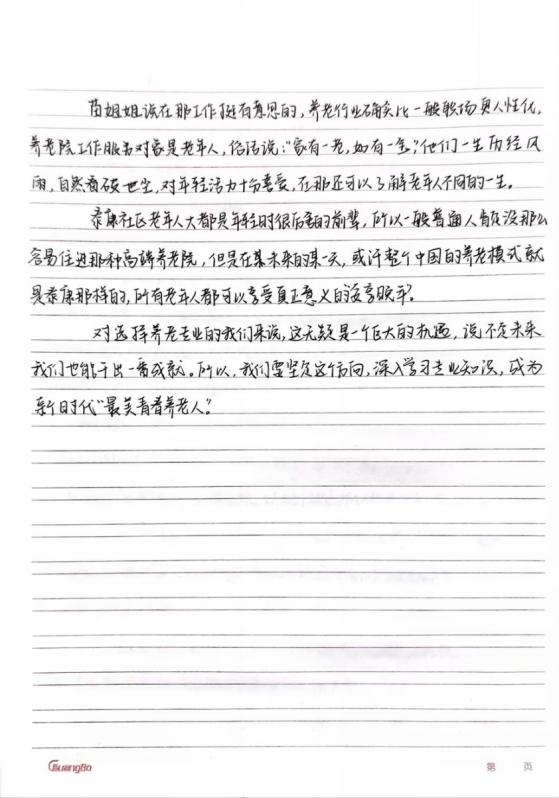 苗姐姐说在那工作挺有意思的,养老行业确实比一般职场更人性化,
养老院工作服务对象是老年人,俗话说:"家有一老,如有一宝",他们一生历经风
雨,自然看破世尘,对年轻活力十分喜爱,在那还可以了解老年人不同的一生。
泰康社区老年人大都是年轻时很厉害的前辈,所以一般普通人肯定没那么
容易住进那种高端养老院,但是在某未来的某一天,或许整个中国的养老模式就
是泰康那样的,所有老年人都可以享受真正意义的安享晚年。
对选择养老专业的我们来说,这无疑是一个巨大的机遇,说不定未来
我们也能干出一番成就。所以,我们要坚定这个方向,深入学习专业知识,成为
新时代"最美青春养老人"。
GuangBo
第 页